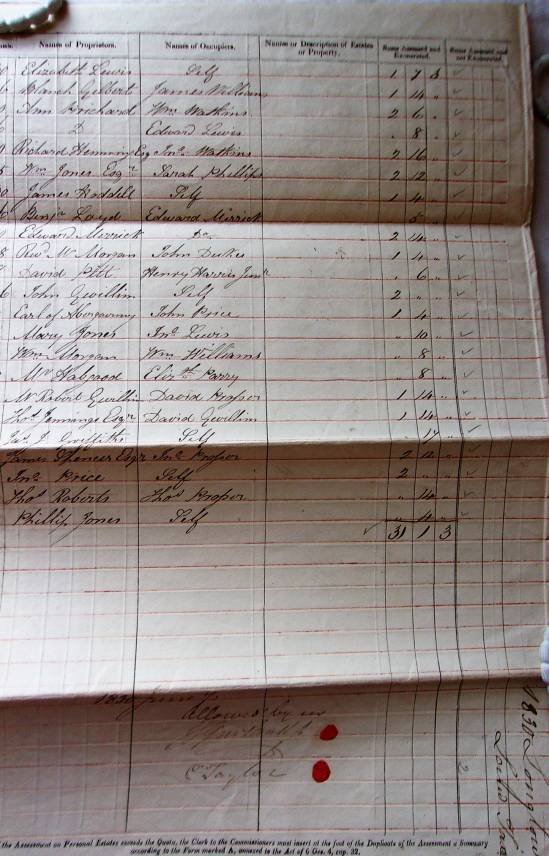 Names of Proprietors. Names of Occupiers. Names or Description of Estates or Property. Sums Assessed and Exonerated. Sums Assessed and not Exonerated.
Elizabeth Lewis Self 1 7 3
Blanch Gilbert James Williams 1 14 "
Ann Prichard Wm Watkins 2 6 "
Do Edward Lewis " 8 "
Richard Hemming Esq Jno Watkins 2 16 "
Wm Jones Esqr Sarah Phillips 2 12 "
James Hoddell Self 1 4 "
Benjn Loyd Edward Merrick " 5 "
Edward Merrick Do 2 14 "
Revd Mr Morgan John Dukes 1 4 "
David Pitt Henry Harris Junr " 6 "
John Gwillim Self 2 " "
Earl of Abergavenny John Price 1 4 "
Mary Jones Jno Lewis " 10 "
Wm Morgan Wm Williams " 8 "
Mr Habgood Elizth Parry " 8 "
Mr Robert Gwillim David Prosser 1 14 "
Thos Jennings Esqr David Gwillim 1 14 "
Jas P Griffiths Self " 17 "
James Spencer Esqr Jno Prosser 2 12 "
Jno Price Self 2 " "
Thos Roberts Thos Prosser " 14 "
Phillip Jones Self " 4 "
31 1 3
1830 June
Allowed by us
C Taylor
1830
the Assessment on Personal Estates exceeds the Quota, the Clerk to the Commissioners must insert at the foot of the Duplicate of the Assessment a Summary
according to the Form marked A, annexed to the Act of 6 Geo. 4, cap. 32.